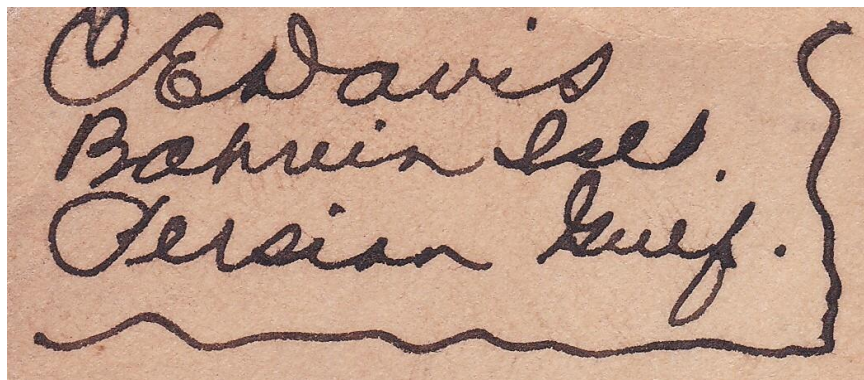 C E Davis
Bahrein Isld.
Persian Gulf.